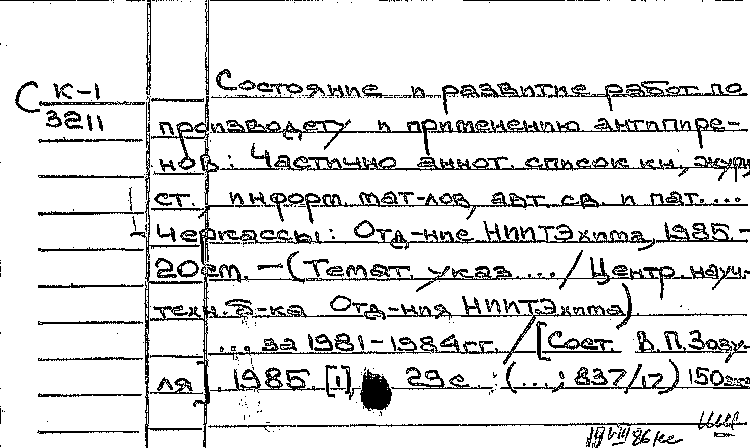 С К-1
3211
Состояние и развитие работ по
производству и применению антипире-
нов: Частично аннот. список кн., журн.
ст., информ. мат-лов, авт. св. и пат. ...
Черкассы: Отд-ние НИИТЭхима, 1985.-
20 см. — (Темат. указ. ... / Центр. науч.-
техн. б-ка Отд-ния НИИТЭхима)
... за 1981-1984 гг. / [Сост. В.П. Зозу-
ля]. 1985. [1], 29 с. : (...; 837/17) 150 экз